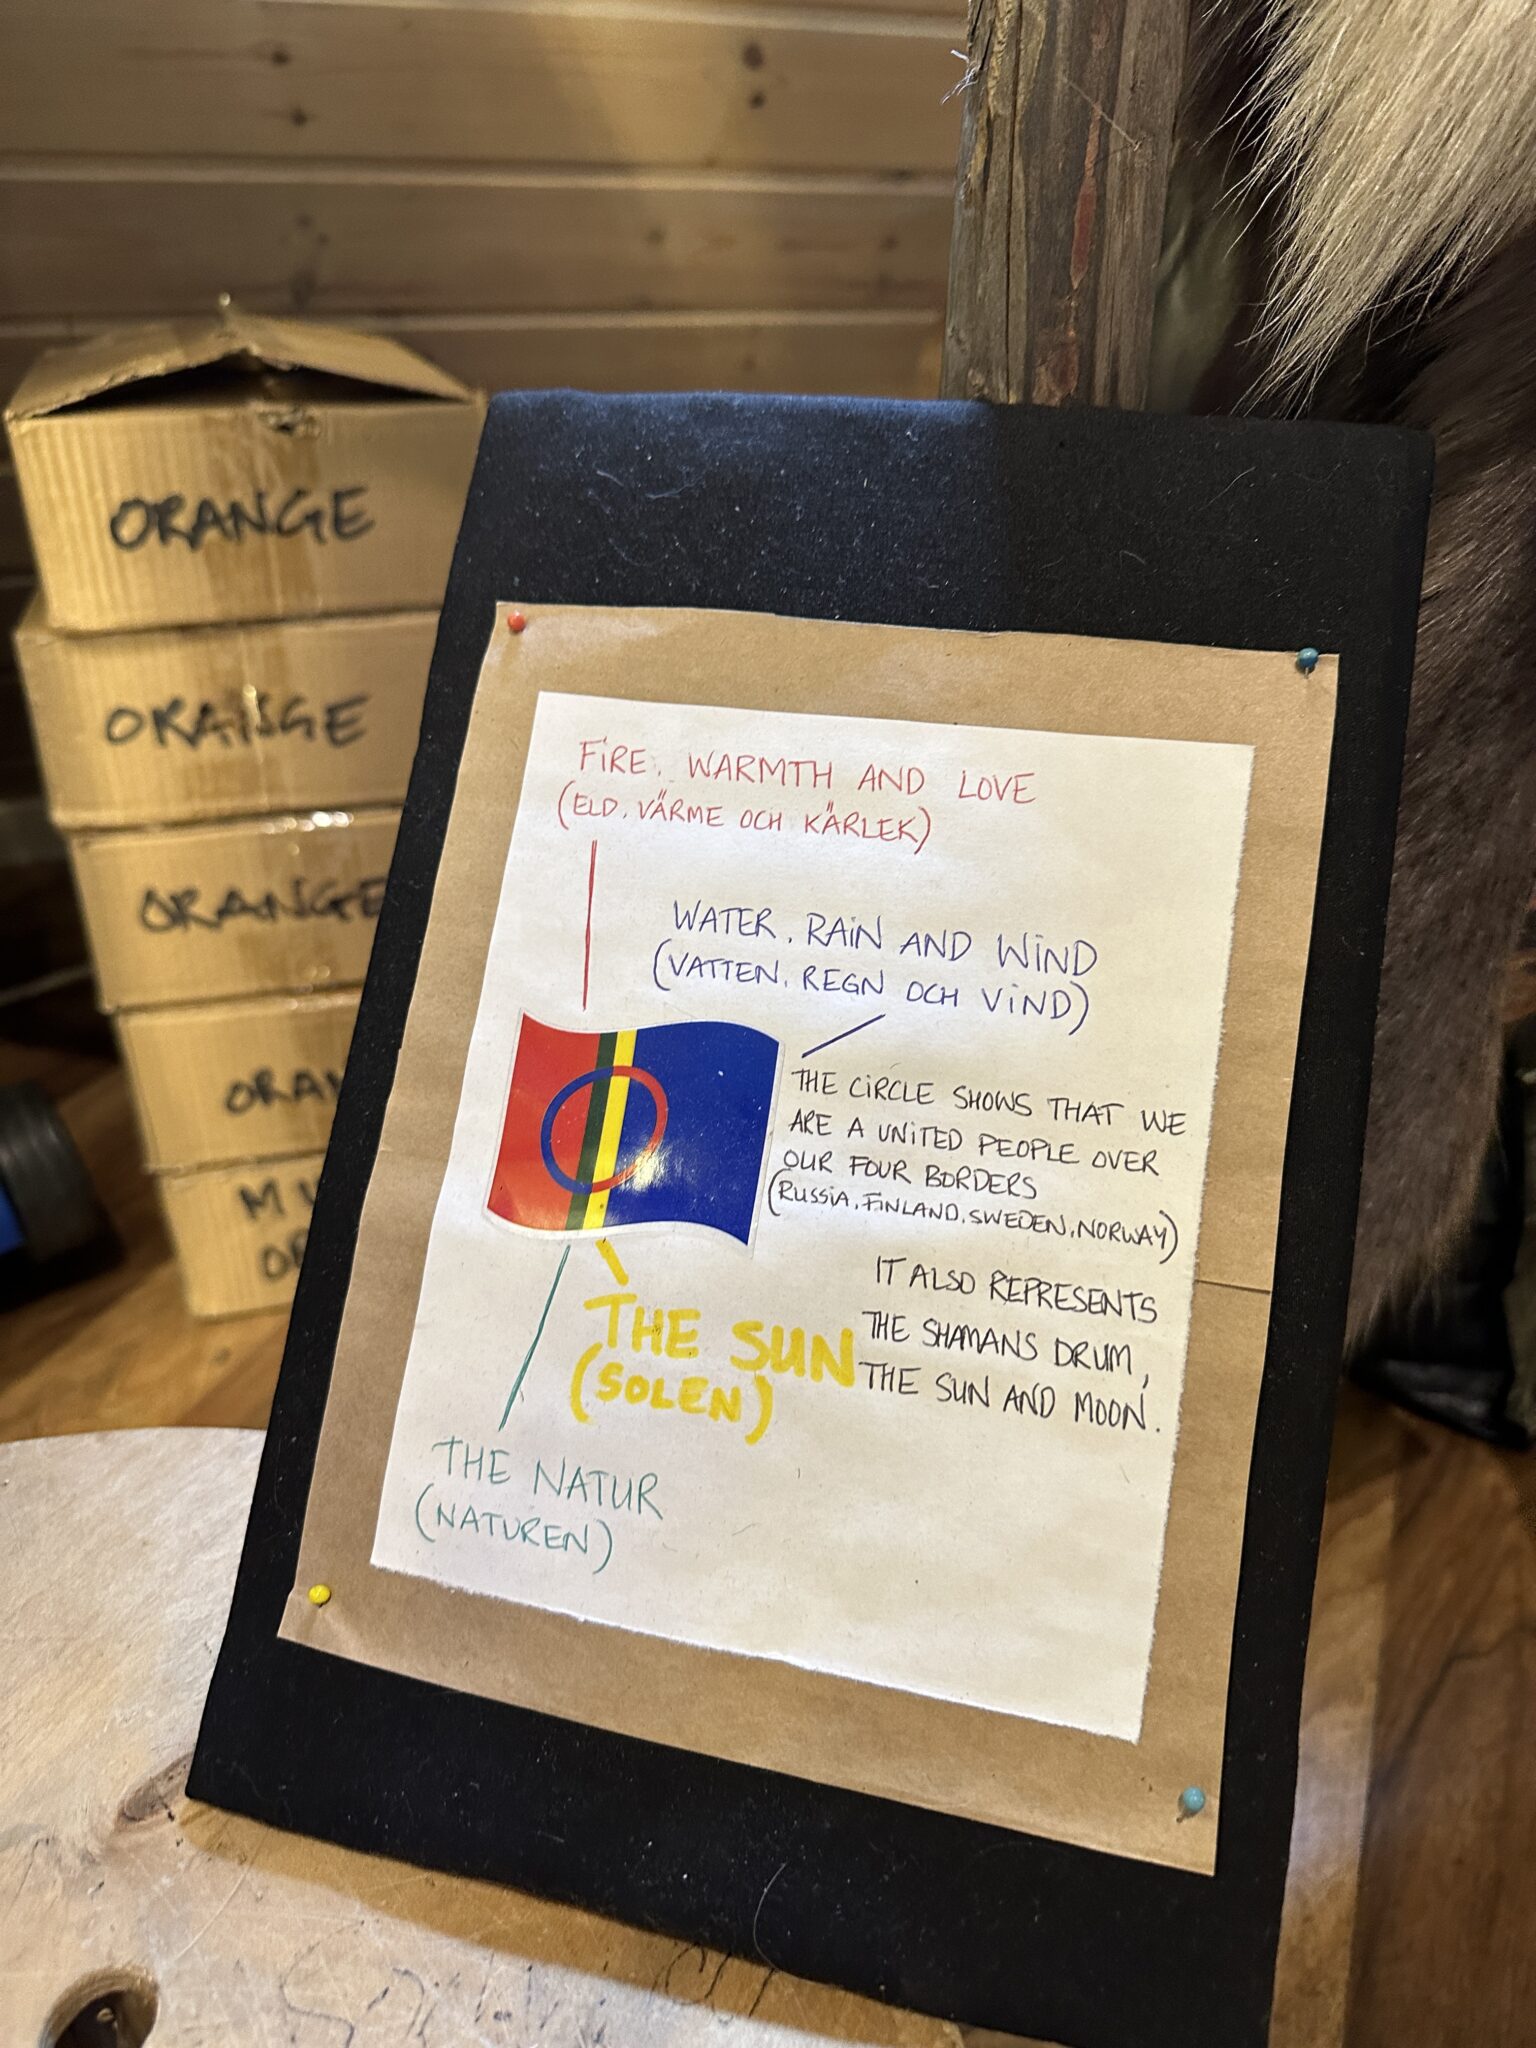 ORANGE
ORANGE
ORANGE
FIRE, WARMTH AND LOVE
(ELD, VÄRME OCH KÄRLEK)
WATER, RAIN AND WIND
(VATTEN, REGN OCH VIND)
THE CIRCLE SHOWS THAT WE
ARE A UNITED PEOPLE OVER
OUR FOUR BORDERS
(RUSSIA, FINLAND, SWEDEN, NORWAY)
IT ALSO REPRESENTS
THE SHAMANS DRUM,
THE SUN AND MOON.
THE SUN
(SOLEN)
THE NATUR
(NATUREN)